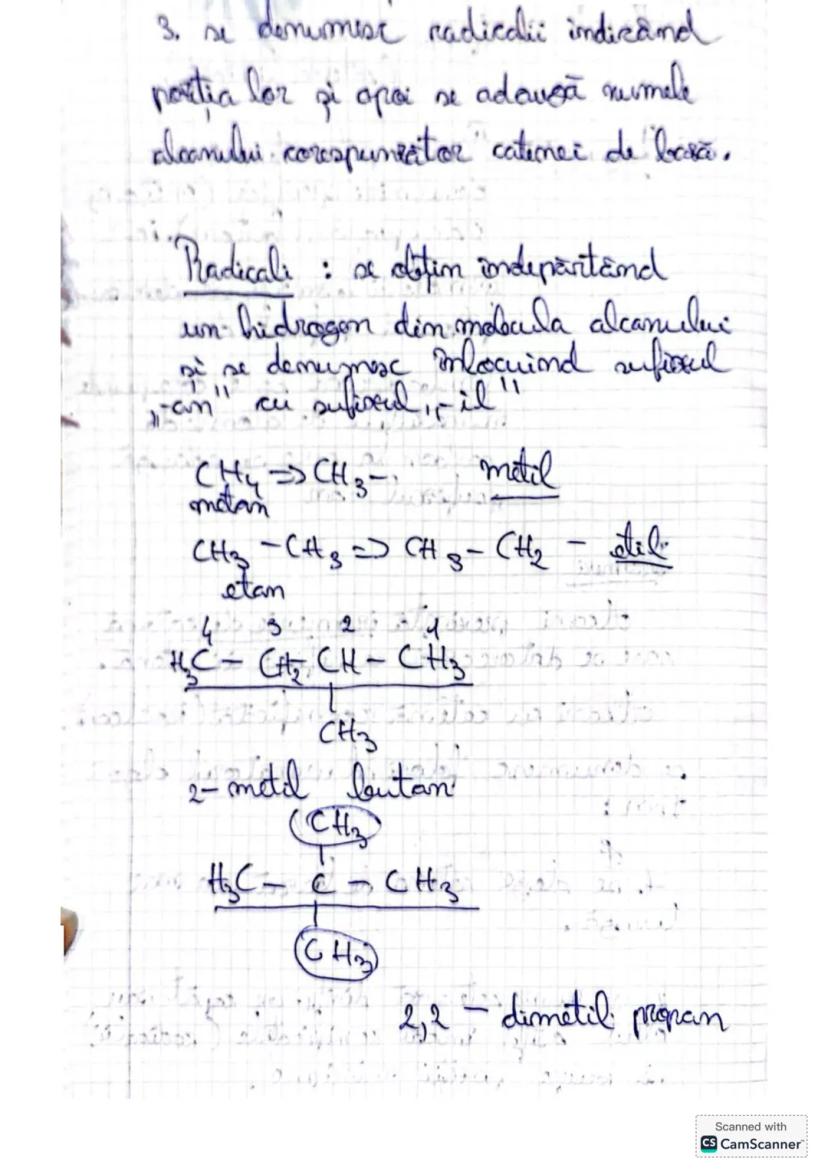 3. se denumesc radicalii indicând
poziția lor și apoi se adaugă numele
alcanului corespunzător catenei de bază.
Radicali : se obțin îndepărtând
un hidrogen din molecula alcanului
și se denumesc înlocuind sufixul
„-an" cu sufixul „-il"
CH4 => CH3 - metil
metan
CH3 - CH3 => CH3 - CH2 - etil
etan
4 3 2 1
H3C - CH2 CH - CH3
CH3
2- metil butan
CH3
H3C - C - CH3
CH3
2,2 - dimetil propan
Scanned with
CS CamScanner